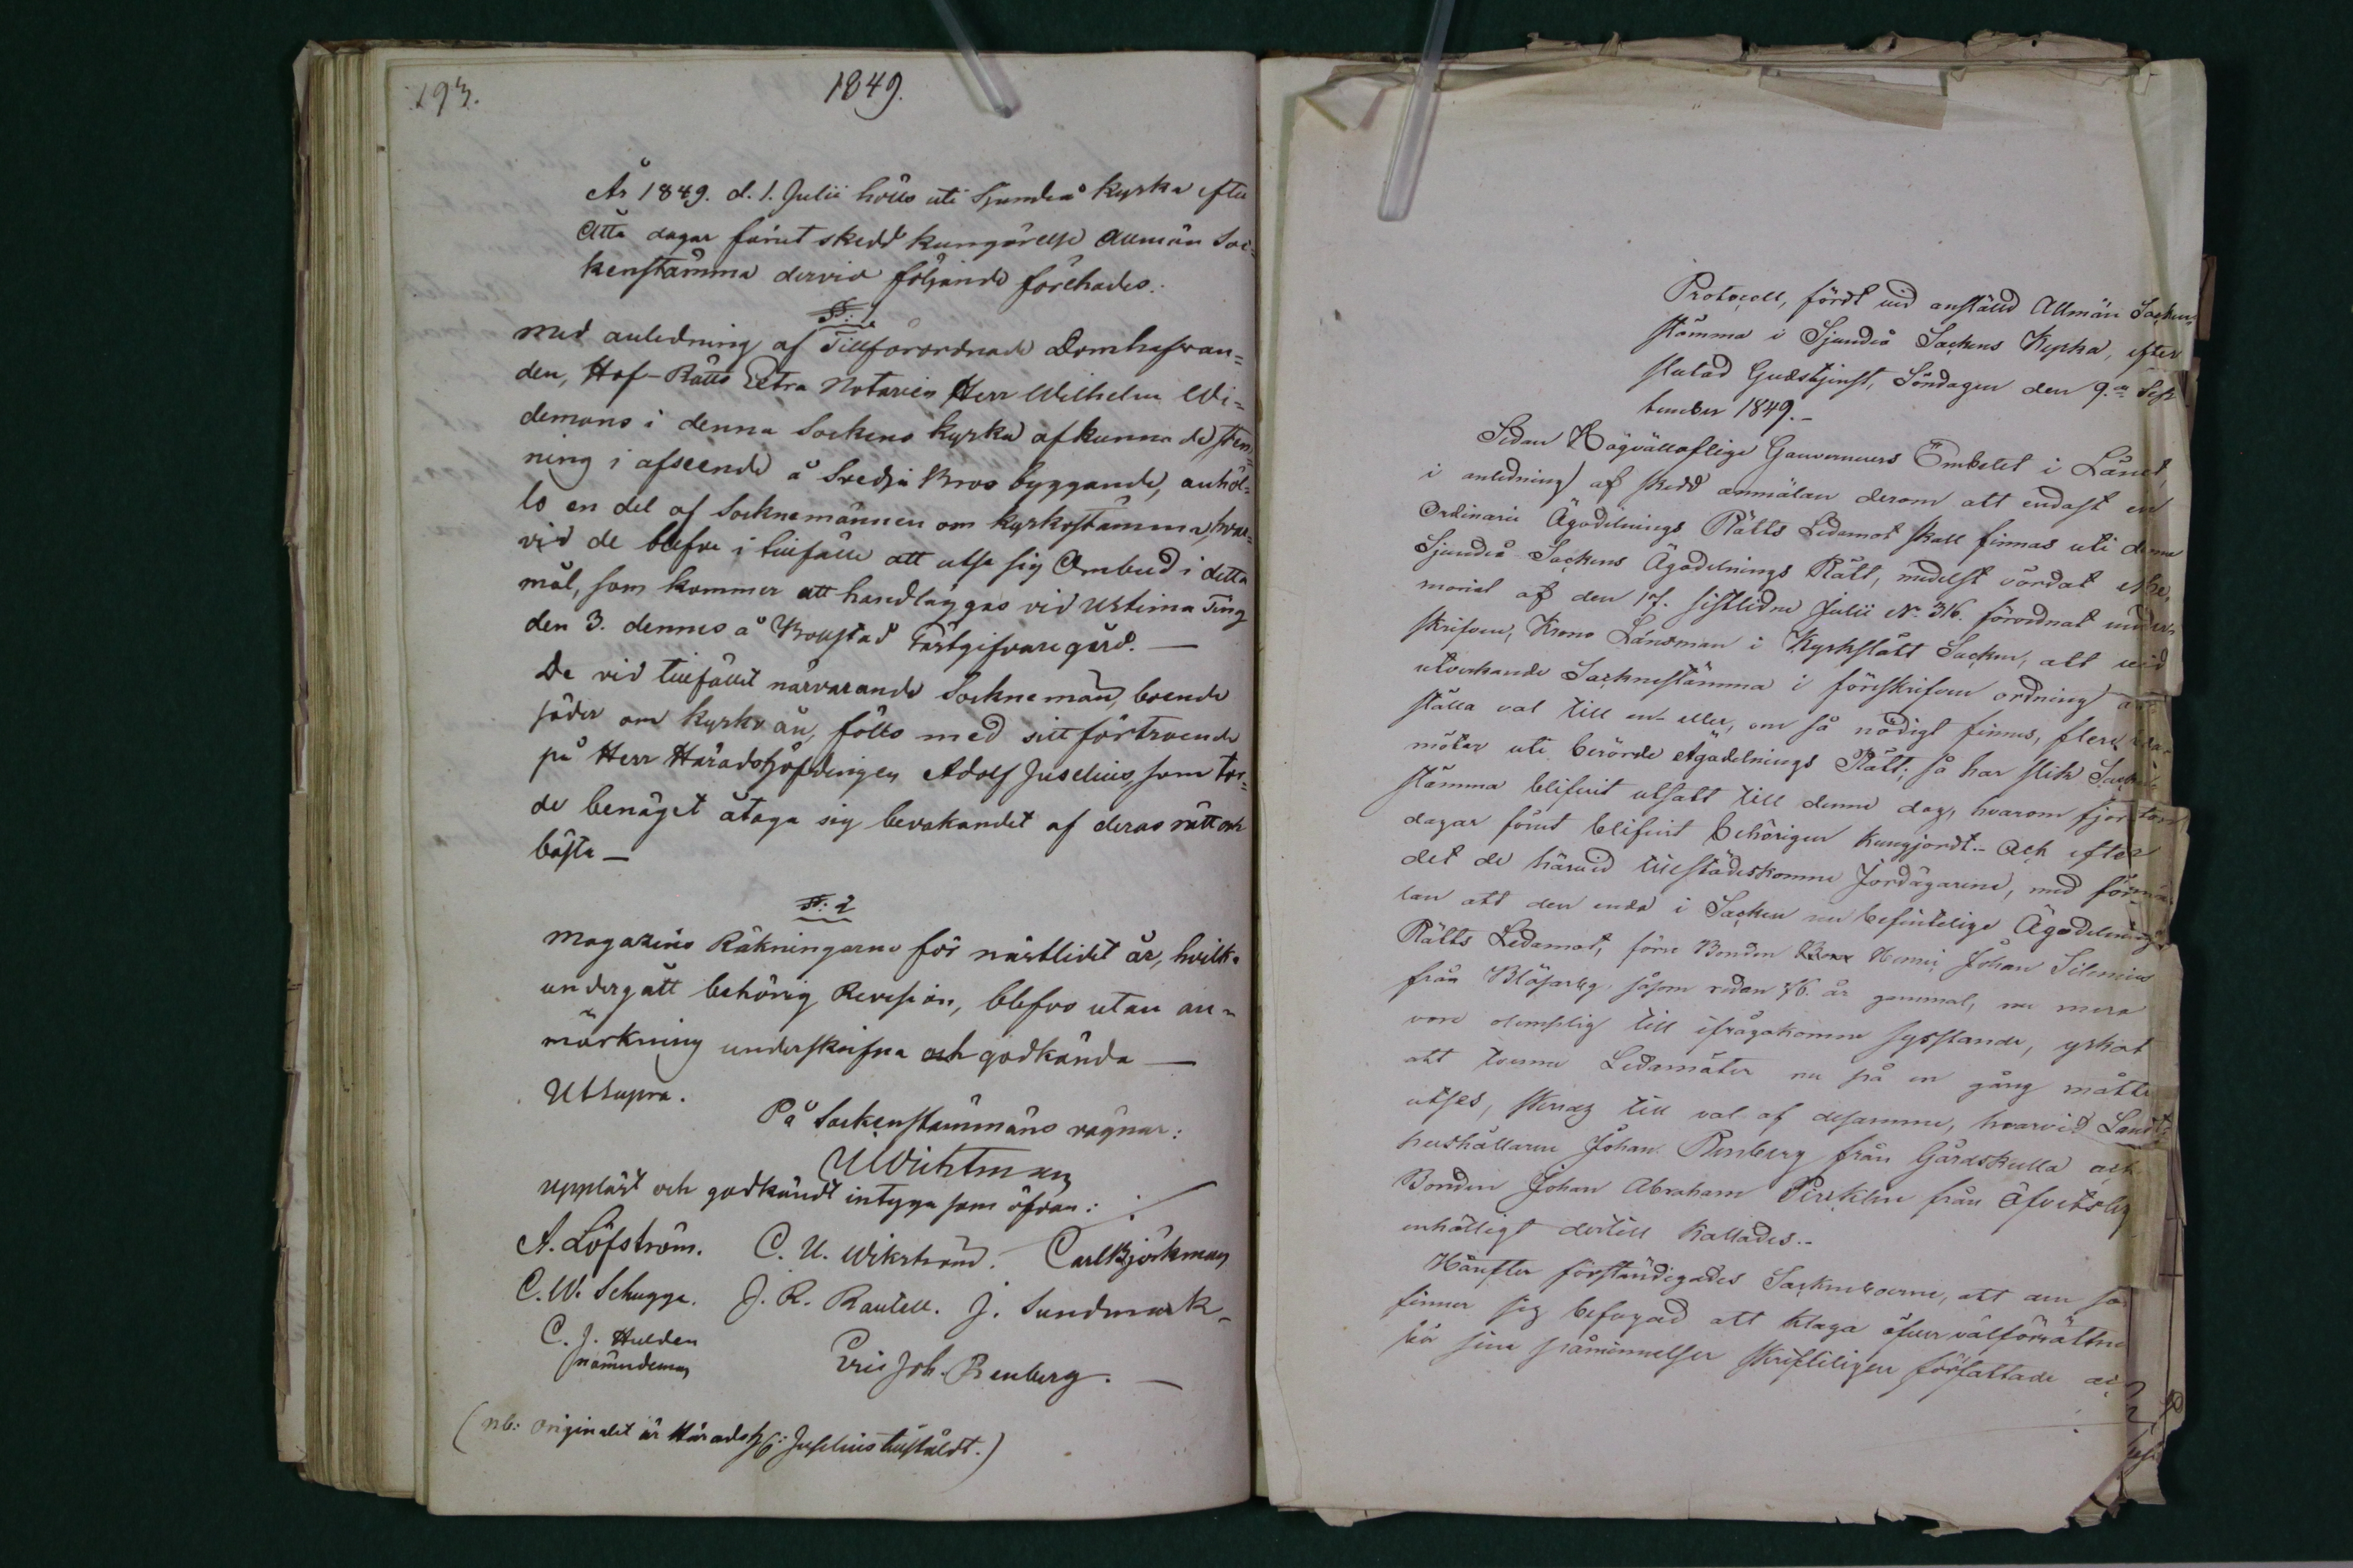 193.
1849.
År 1849. d. 1. Julii hölls uti Sjundeå Kyrka efter
Åtta dagar förut skedd kungörelse Allmän Soc-
kenstämma dervid följande förehades:
§: 1
Med anledning af Tillförordnade Domhafvan-
den, Hof-Rätts Extra Notarien Herr Wilhelm Wi-
demans i denna Sockens Kyrka afkunnade stem-
ning i afseende å Svedja Bros byggande, anhöl-
lo en del af Socknemännen om kyrkostämma, hvar-
vid de blefve i tillfälle att utse sig Ombud i detta
mål, som kommer att handläggas vid Urtima Ting
den 3. dennes å Bollstad Gästgifvaregård. —
De vid tillfället närvarande Socknemän, boende
söder om Kyrkoån, föllo med sitt förtroende
på Herr Häradshöfdingen Adolf Juselius, som tor-
de benäget åtaga sig bevakandet af deras rätt och
bästa —
§: 2
Magazins Räkningarne för nästlidet år, hvilka
undergått behörig Revision, blefvo utan an-
märkning underskrifna och godkända —
Utsupra.
På Sockenstämmans vägnar:
Uppläst och godkändt intyga som öfvan:
A. Löfström. C. U. Wikström. Carl Björkman
C. W. Schugge. J. R. Rautell. J. Sundmark.
C. J. Hulden
nämndeman
Eric Joh. Renberg. —
(nb: Originalet är Häradsh: Juselius tillstäldt.)
Protocoll, fördt vid anställd Allmän Socken-
stämma i Sjundeå Sockens Kyrka, efter
slutad Gudstjenst, Söndagen den 9.de Sep-
tember 1849.-
Sedan Högvälloflige Gouverneurs Embetet i Länet,
i anledning af skedd anmälan derom att endast en
Ordinarie Ägodelnings Rätts Ledamot skall finnas uti denna
Sjundeå Sockens Ägodelnings Rätt, medelst vördat Me-
morial af den 17. sistlidne Julii No. 316. förordnat under-
skrifven, Krono Länsman i Kyrkslätt Socken, att vid
utverkande Socknestämma i föreskrifven ordning an-
ställa val till en eller, om så nödigt finnes, flere Leda-
möter uti berörde Ägodelnings Rätt; så har slik Socken-
stämma blifvit utsatt till denne dag, hvarom fjorton
dagar förut blifvit behörigen kungjordt.- Och efter
det de härvid tillstädeskomne Jordägarene, med förmä-
lan att den enda i Socken nu befintelige Ägodelnings
Rätts Ledamot, förre Bonden Henric Johan Silenius
från Blåsarby, såsom redan 76. år gammal, nu mera
vore olemplig till ifrågakomne sysslande, yrkat
att tvenne Ledamöter nu på en gång måtte
utses, skredz till val af desamme, hvarvid Landt-
hushållaren Johan Renberg från Gårdskulla och
Bonden Johan Abraham Pirrklin från Öfvitsby
enhälligt dertill kallades.-
Härefter förständigades Socknboerne, att den som
finner sig befogad att klaga öfver valförrättnin
bör sine påminnelser skrifteligen författade